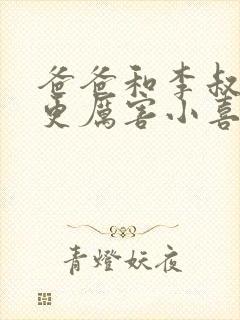 爸爸和李叔
更厲害小喜
青燈妖夜